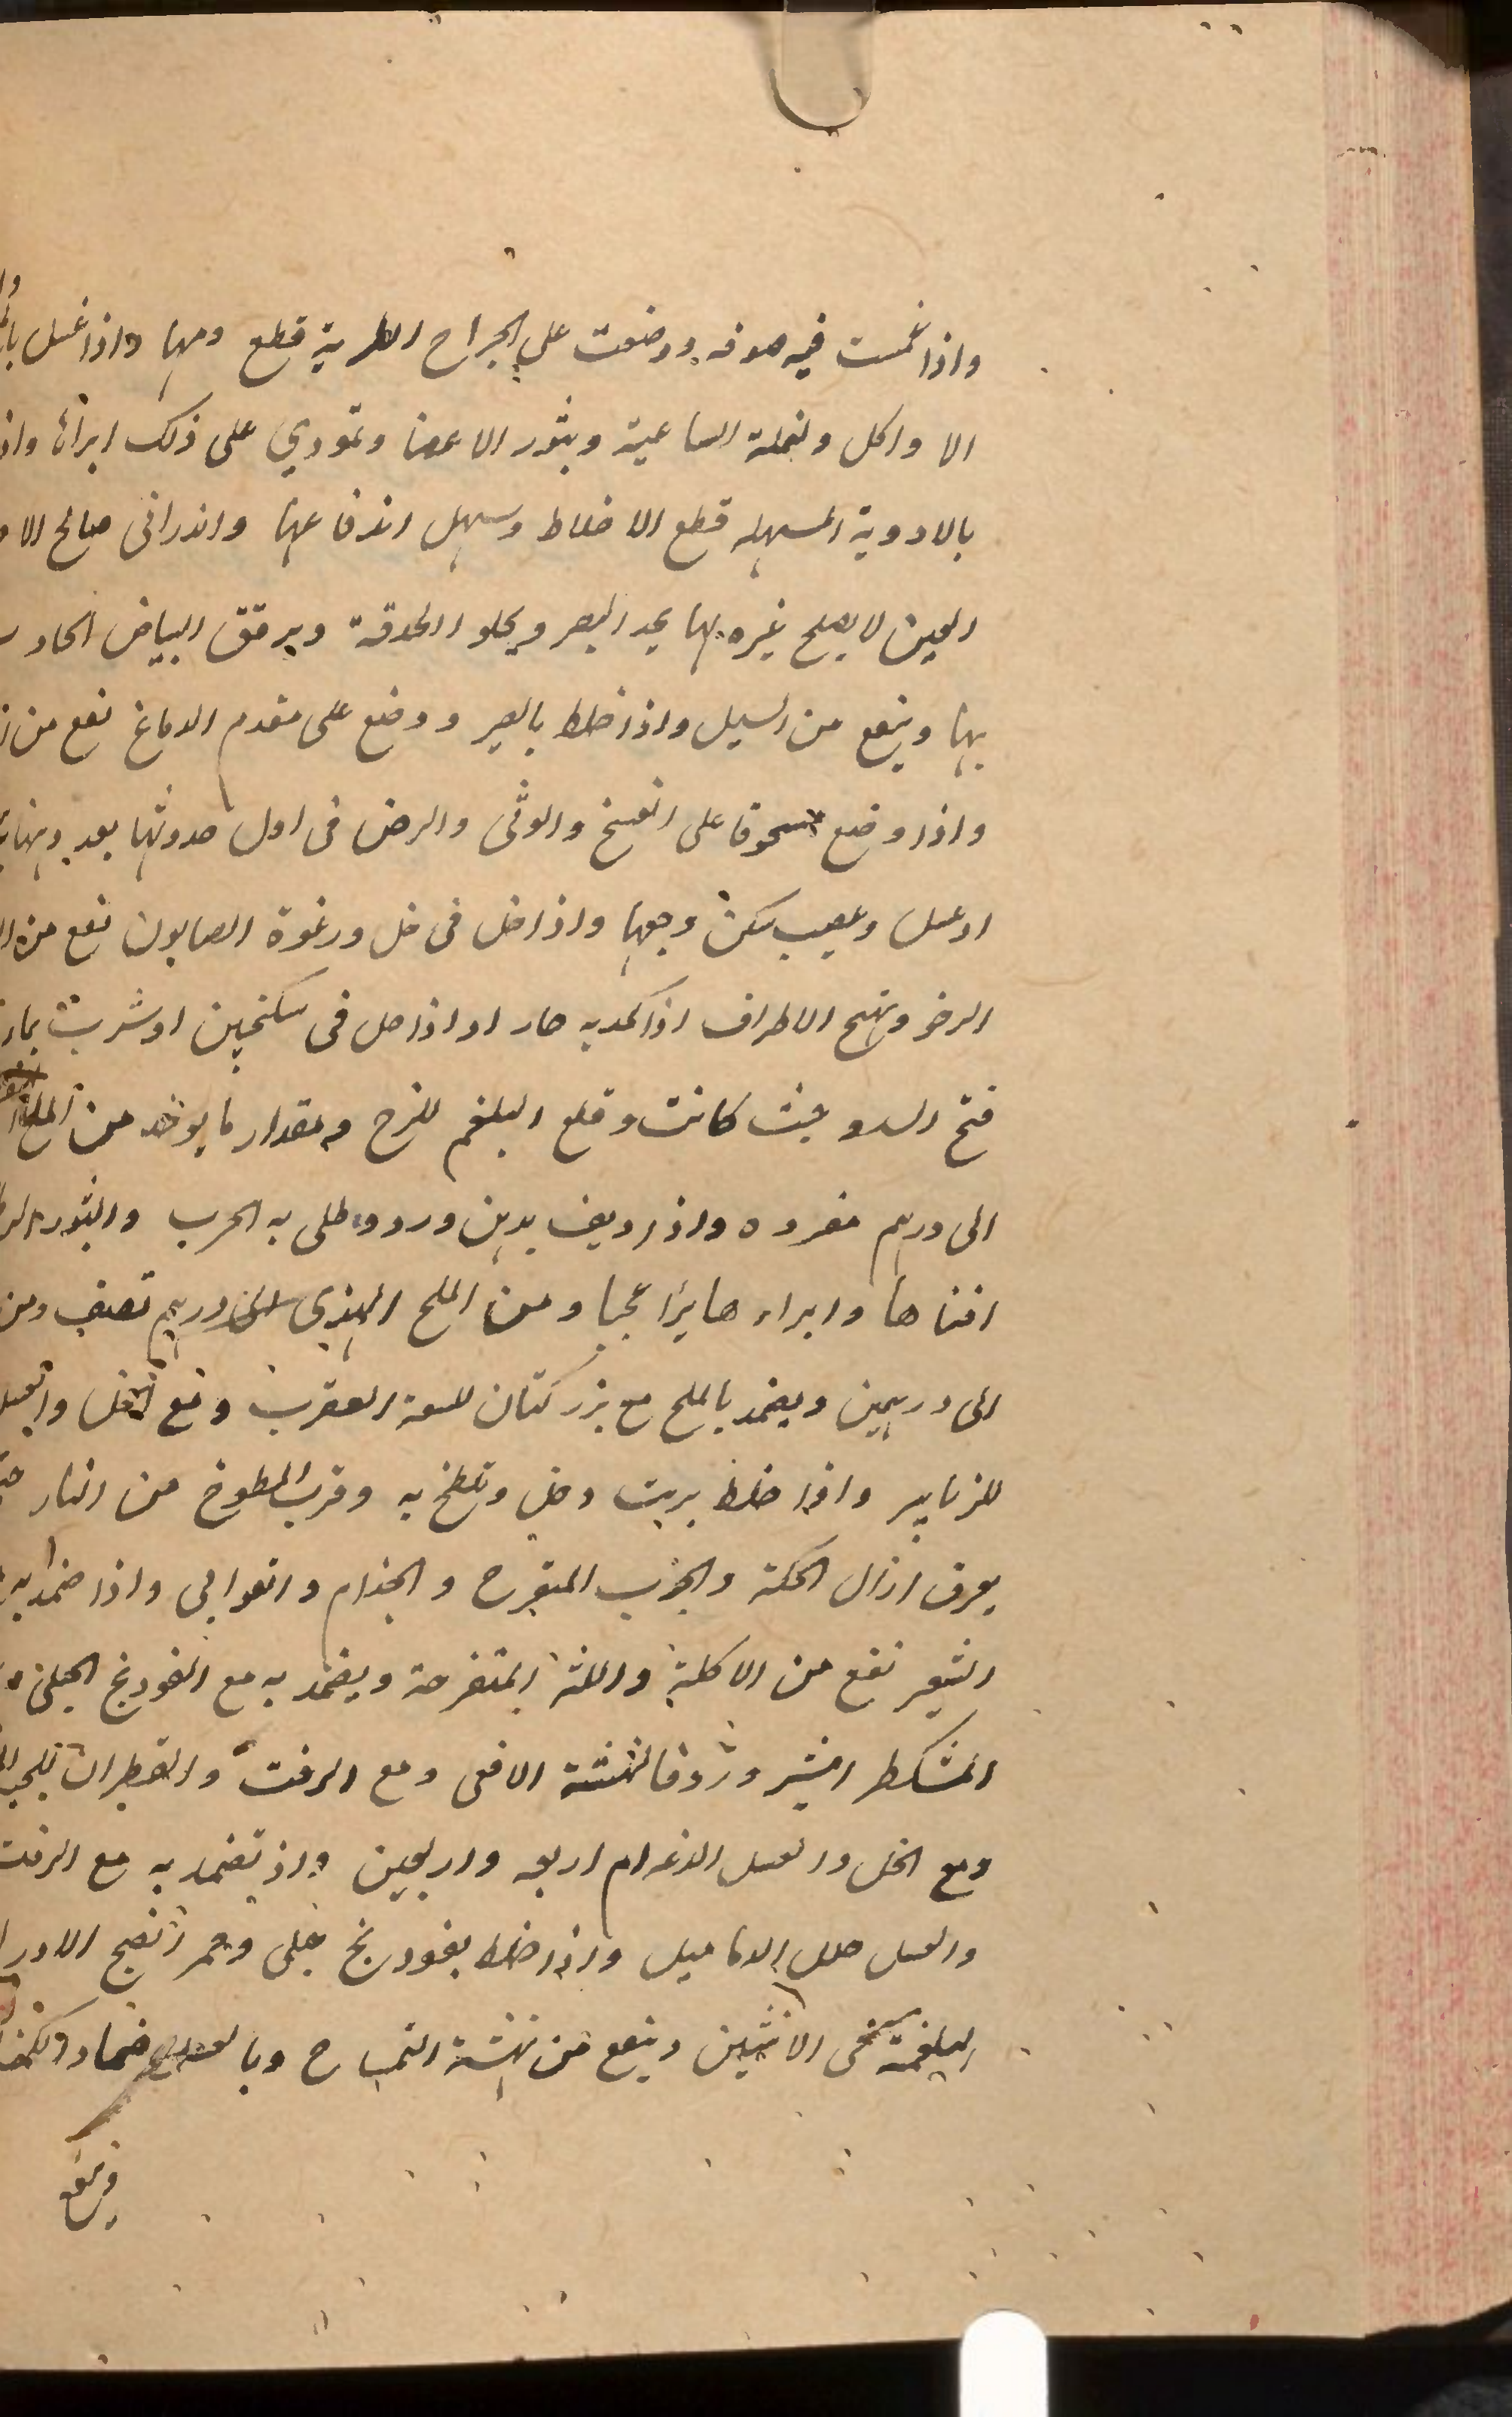 واذا غمست فيه صوفه ووضعت على الجراح الطرية قطع دمها واذا غسل
الا واكل والنملة الساعية وبثور الاعضا وتمودي على ذلك ابراها واذ
بالادوية المسهله قطع الاخلاط وسهل اندفاعها واندرانى صالح
العين لا يصلح غيره لها يحد البصر ويجلو الحدقة ويرقق البياض الحاد
بها وينفع من السبل واذا خلط بالصبر ووضع على مقدم الدماغ نفع من
واذا وضع مسحوقا على الفسخ والوثى والرض فى اول حدوثها بعد
او عسل وعصب سكن وجعها واذا حل فى خل ورغوة الصابون نفع من
الرخو وتهيج الاطراف اذا كمد به حار او اذا حل فى سكنجبين او شربت
فتح السدد حيث كانت وقلع البلغم للزج ومقدار ما يوخد من الملح
الى درهم مفرده واذا ديف بدهن ورد وطلى به الجرب والبثور
افناها وابراءها برًا عجبا ومن الملح الهندى درهم نصف ومن
الى درهمين ويضمد بالملح مع بزر كتان للسعة العقرب ومع الخل والعسل
للزنابير واذا خلط بزيت وخل وتلطخ به وقرب المطوخ من النار
يعرق ازال الحكة والجرب المتقرح والجذام والقوابى واذا ضمد به
الشعير نفع من الاكلة واللثة المتقرحة ويضمد به مع الفودنج الجبلى
المشكطرامشير وزوفا لنهشة الافعى ومع الزفت والقطران
ومع الخل والعسل اربعه واربعين واذ تضمد به مع الزفت
والعسل حلل الدماميل واذا خلط بفودنج جبلى وخمر انضج
البلغمية فى الانثيين وينفع من نهشة التمساح ضمادا
وينفع